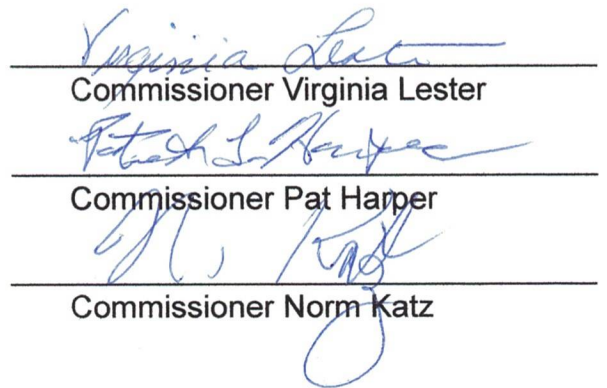 Virginia Lester
Commissioner Virginia Lester
Harper
Commissioner Pat Harper
N. Katz
Commissioner Norm Katz